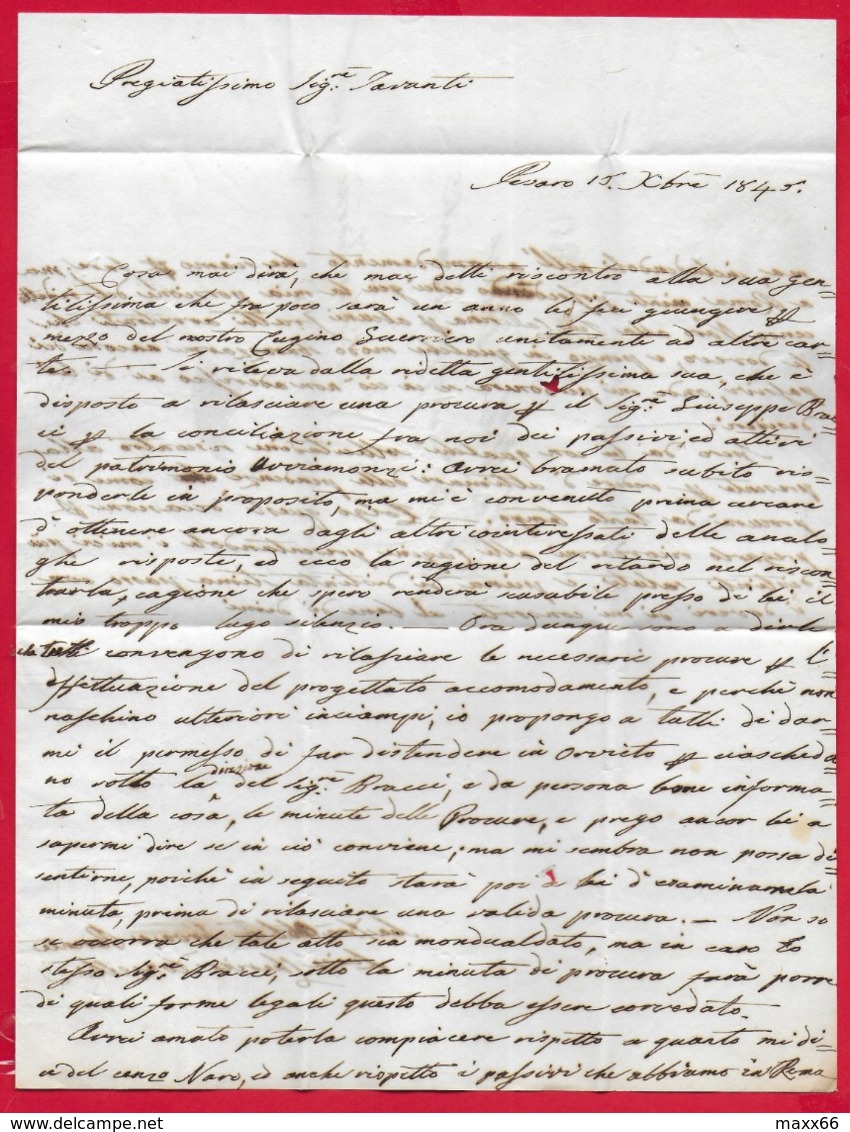 Pregiatissimo Sig.re Tavanti
Pesaro 15. Xbre 1845.
Cosa mai dirà, che mai detti riscontro alla sua gen=
tilissima che fra poco sarà un anno le feci giungere p
mezzo del nostro Cugino Guerriero unitamente ad altre car=
te. — Si rileva dalla ridetta gentilissima sua, che è
disposto a rilasciare una procura p il Sig.re Giuseppe Brac=
ci p la conciliazione fra noi dei passivi, ed attivi
del patrimonio : Avrei bramato subito ris=
ponderle in proposito, ma mi è convenuto prima cercare
d'ottenere ancora dagli altri cointeressati delle analo=
ghe risposte, ed ecco la ragione del ritardo nel riscon=
trarla, cagione che spero renderà scusabile presso di lei il
mio troppo lugo silenzio. — Ora dunque sono a dirle
che tutti convengono di rilasciare le necessarie procure p l'e=
ffettuazione del progettato accomodamento, e perchè non
naschino ulteriori inciampi, io propongo a tutti di dar=
mi il permesso di far distendere in Orvieto p ciaschedu=
no sotto la direzione del Sig.re Bracci, e da persona bene informa=
ta della cosa, le minute delle Procure, e prego ancor lei a
sapermi dire se in ciò conviene; ma mi sembra non possa di=
sentirne, poichè in seguito starà poi a lei d'esaminarne la
minuta, prima di rilasciare una valida procura. — Non so
se occorra che tale atto sia mondualdato, ma in caso lo
stesso Sig.re Bracci, sotto la minuta di procura farà porre
di quali forme legali questo debba essere corredato.
Avrei amato poterla compiacere rispetto a quanto mi di=
ce del cenzo Naro, ed anche rispetto i passivi che abbiamo in Roma
maxx66